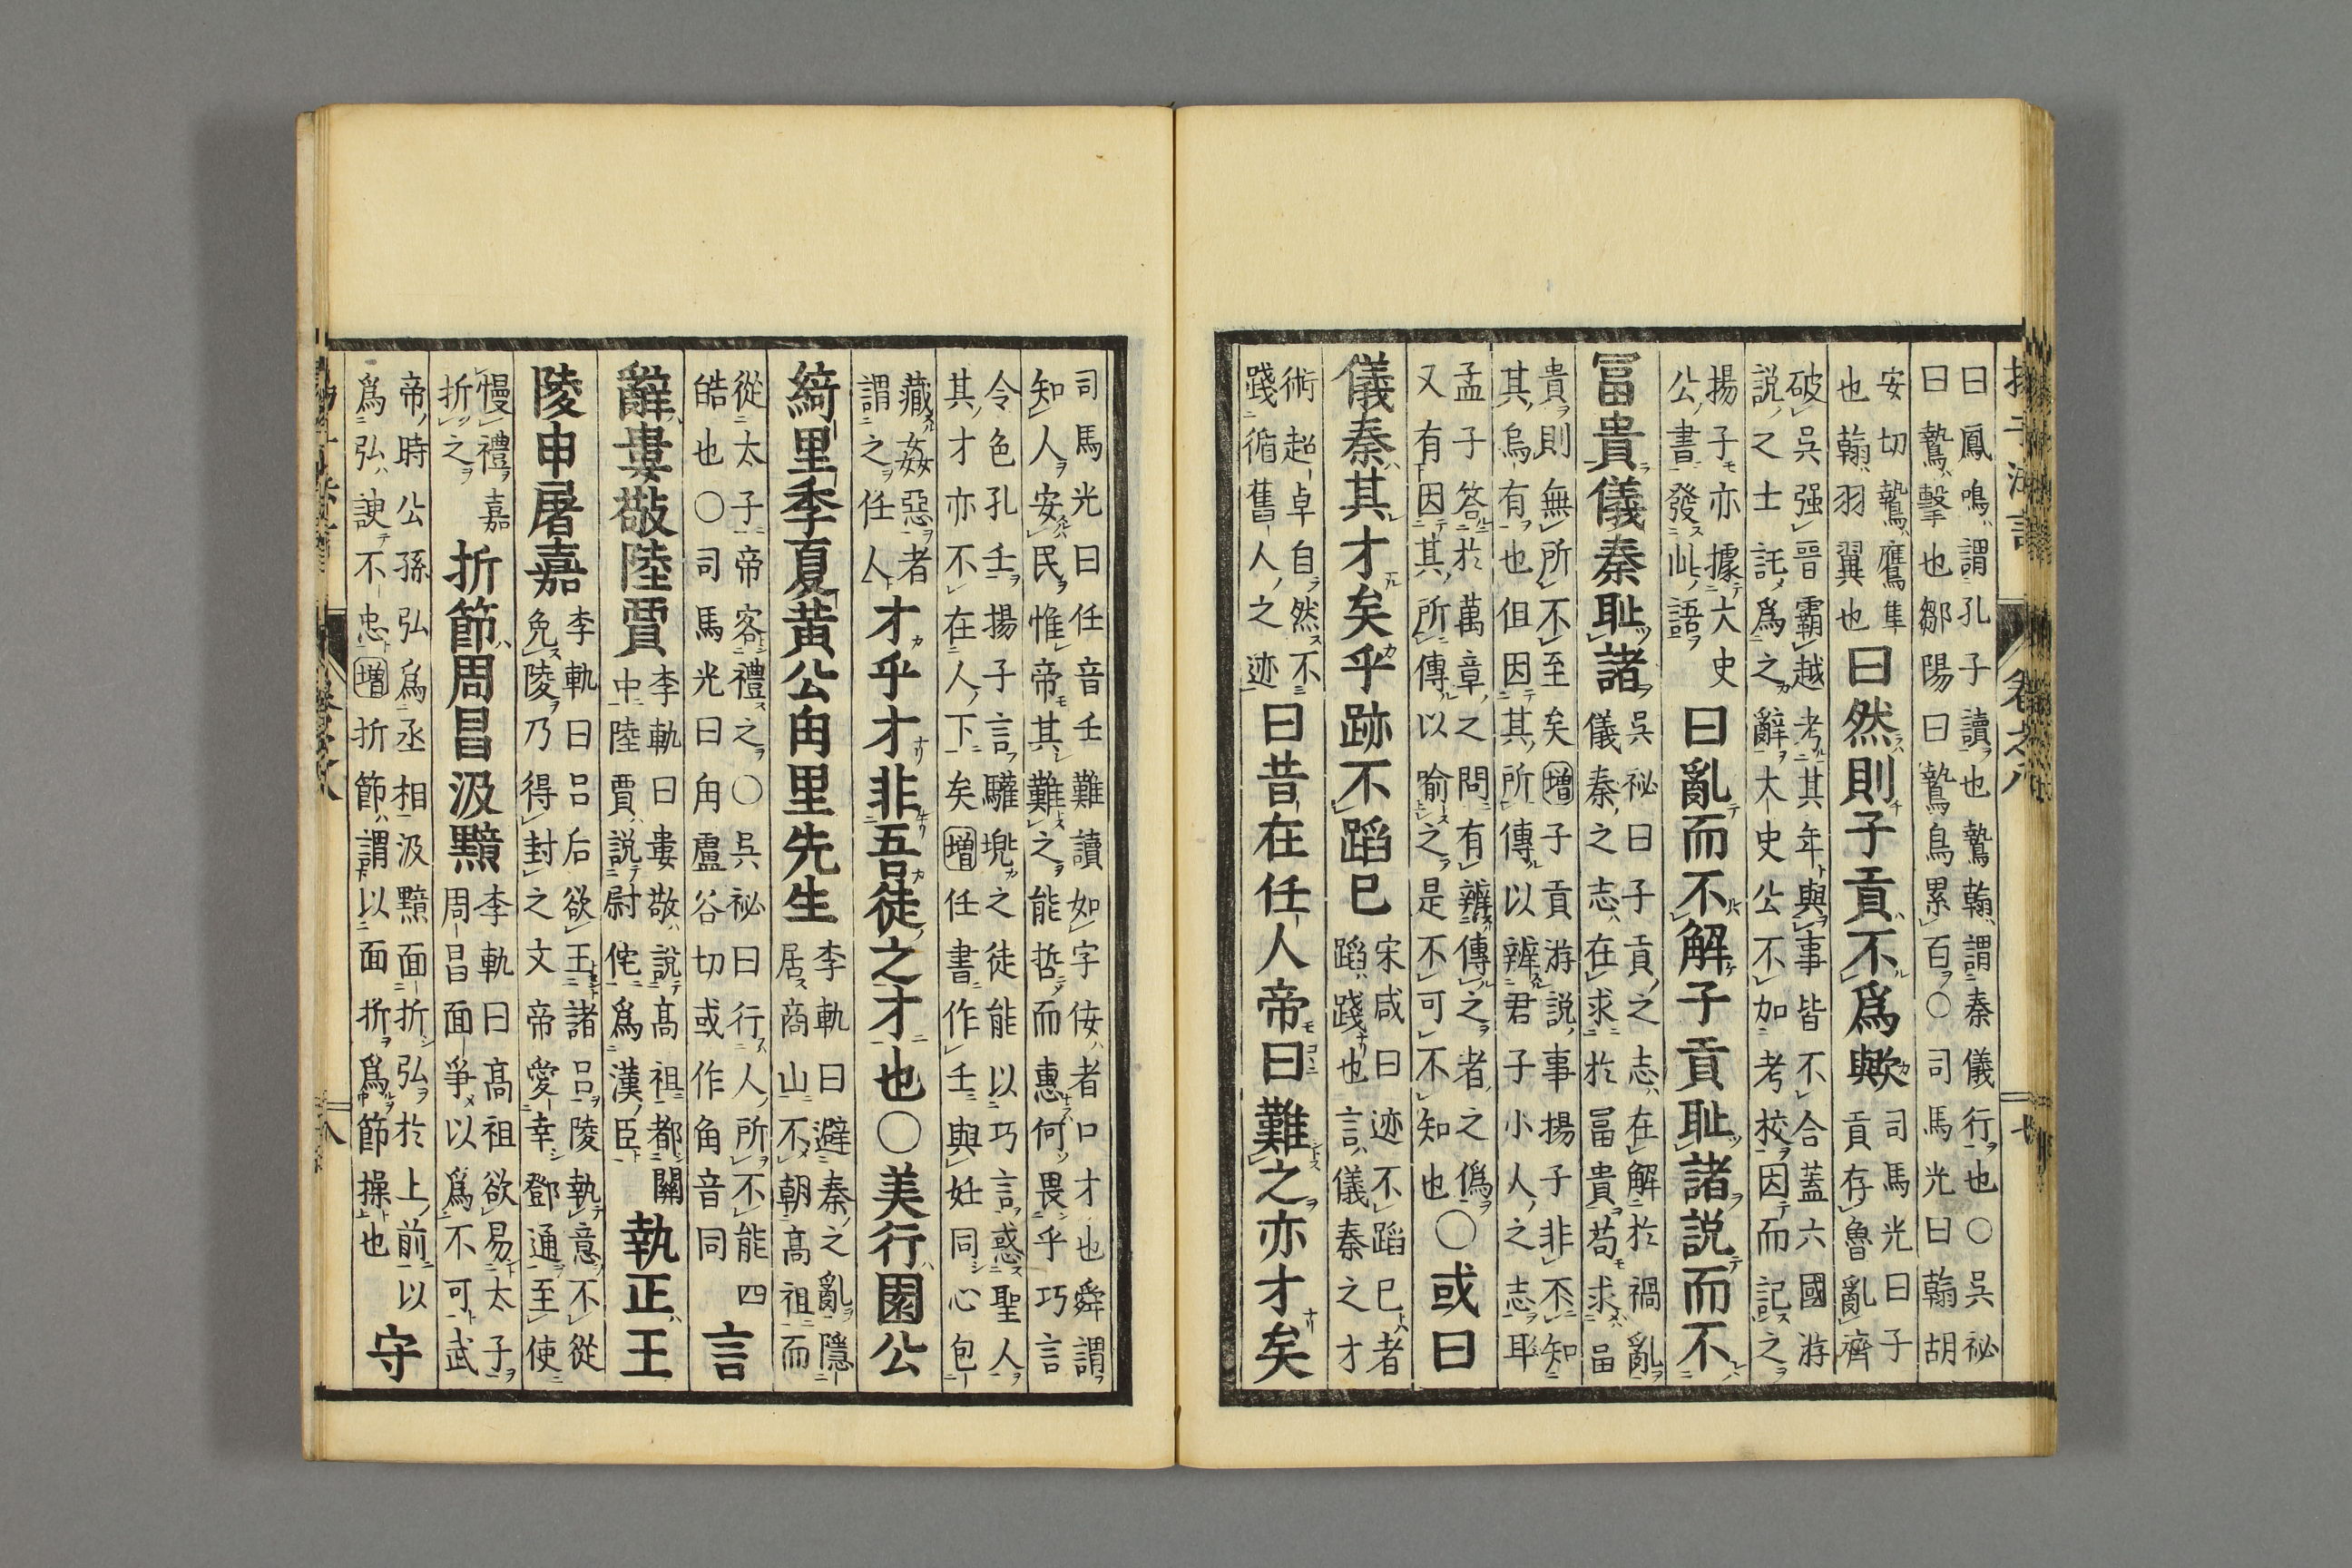 曰鳳鳴謂孔子讀也鷙翰謂秦儀行也〇吳祕
曰鷙擊也鄒陽曰鷙鳥累百〇司馬光曰翰胡
安切鷙鷹隼
也翰羽翼也
曰然則子貢不爲歟
司馬光曰子
貢存魯亂齊
破吳强晉霸越考其年與事皆不合蓋六國游
說之士託爲之辭大史公不加考校因而記之
揚子亦據大史
公書發此語
曰亂而不解子貢耻諸說而不
冨貴儀秦耻諸
吳祕曰子貢之志在解於禍亂
儀秦之志在求於冨貴苟求冨
貴則無所不至矣增子貢游說事揚子非不知
其烏有也但因其所傳以辨君子小人之志耳
孟子答於萬章之問有辨傳之者之僞
又有因其所傳以喻之是不可不知也
〇或曰
儀秦其才矣乎跡不蹈已
宋咸曰迹不蹈已者
蹈踐也言儀秦之才
術超卓自然不
踐循舊人之迹
曰昔在任人帝曰難之亦才矣
司馬光曰任音壬難讀如字侫者口才也舜謂
知人安民惟帝其難之能哲而惠何畏乎巧言
令色孔壬揚子言驩兜之徒能以巧言惑聖人
其才亦不在人下矣增任書作壬與妊同心包
藏姦惡者
謂之任人
才乎才非吾徒之才也〇美行園公
綺里季夏黃公甪里先生
李軌曰避秦之亂隱
居商山不朝高祖而
從太子帝客禮之〇吳祕曰行人所不能四
皓也〇司馬光曰甪盧谷切或作角音同
言
辭婁敬陸賈
李軌曰婁敬說高祖都關
中陸賈說尉佗爲漢臣
執正王
陵申屠嘉
李軌曰呂后欲王諸呂陵執意不從
免陵乃得封之文帝愛幸鄧通至使
慢禮嘉
折之
折節周昌汲黯
李軌曰高祖欲易太子
周昌面爭以爲不可武
帝時公孫弘爲丞相汲黯面折弘於上前以
爲弘諛不忠增折節謂以面折爲節操也
守